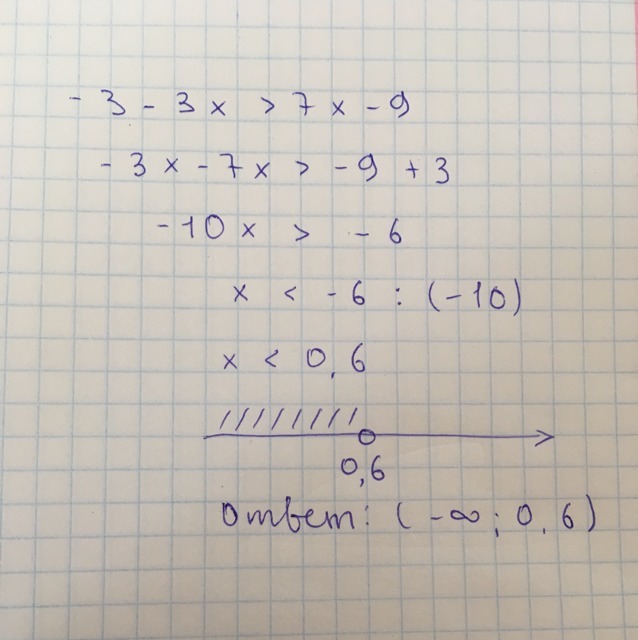 - 3 - 3x > 7x - 9
- 3x - 7x > -9 + 3
-10x > - 6
x < -6 : (-10)
x < 0,6
0,6
Ответ: (-∞; 0,6)